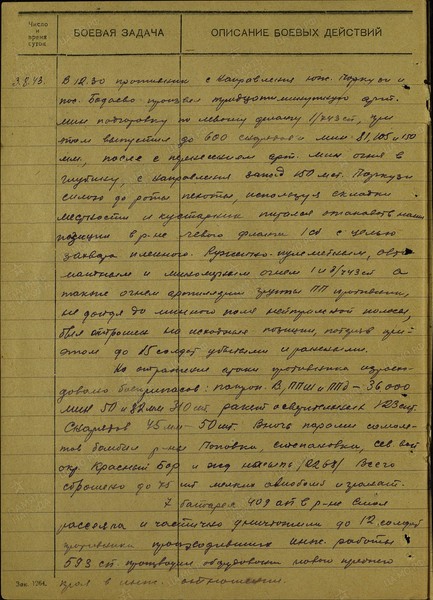 Число и время суток
БОЕВАЯ ЗАДАЧА
ОПИСАНИЕ БОЕВЫХ ДЕЙСТВИЙ
3.8.43. В 12.30 противник с направления юж. Поркузи и
пос. Бадаево произвел тридцатиминутную арт.
мин подготовку по левому флангу 1/443 сп, при
этом выпустил до 600 снарядов и мин 81, 105 и 150
мм, после с перенесением арт. мин огня в
глубину, с направления запад 150 мет. Поркузи
силою до роты пехоты, используя складки
местности и кустарник пытался атаковать наши
позиции в р-не левого фланга 1 сб с целью
захвата пленного. Ружейно-пулеметным, авто
матным и минометным огнем 1 и 2/443 сп а
также огнем артиллерии группы ПП противник,
не дойдя до минного поля нейтральной полосы,
был отброшен на исходные позиции, потеряв при
этом до 15 солдат убитыми и ранеными.
На отражение атаки противника израсхо
довано боеприпасов: патрон. В, ППШ и ППД - 36000
мин 50 и 82 мм 310 шт. ракет осветительных 123 шт.
Снарядов 45 мм - 50 шт. Вновь парами самоле
тов бомбил р-ны Поповка, Степановка, сев вост
окр. Красный Бор и жд насыпь /2268/ Всего
сброшено до 75 шт мелких авиабомб и гранат.
7 батарея 409 ап в р-не
рассеяла и частично уничтожила до 12 солдат
противника производивших инж. работы
593 сп проводил оборудование нового переднего
края в инж. отношении.
Зак. 1264.